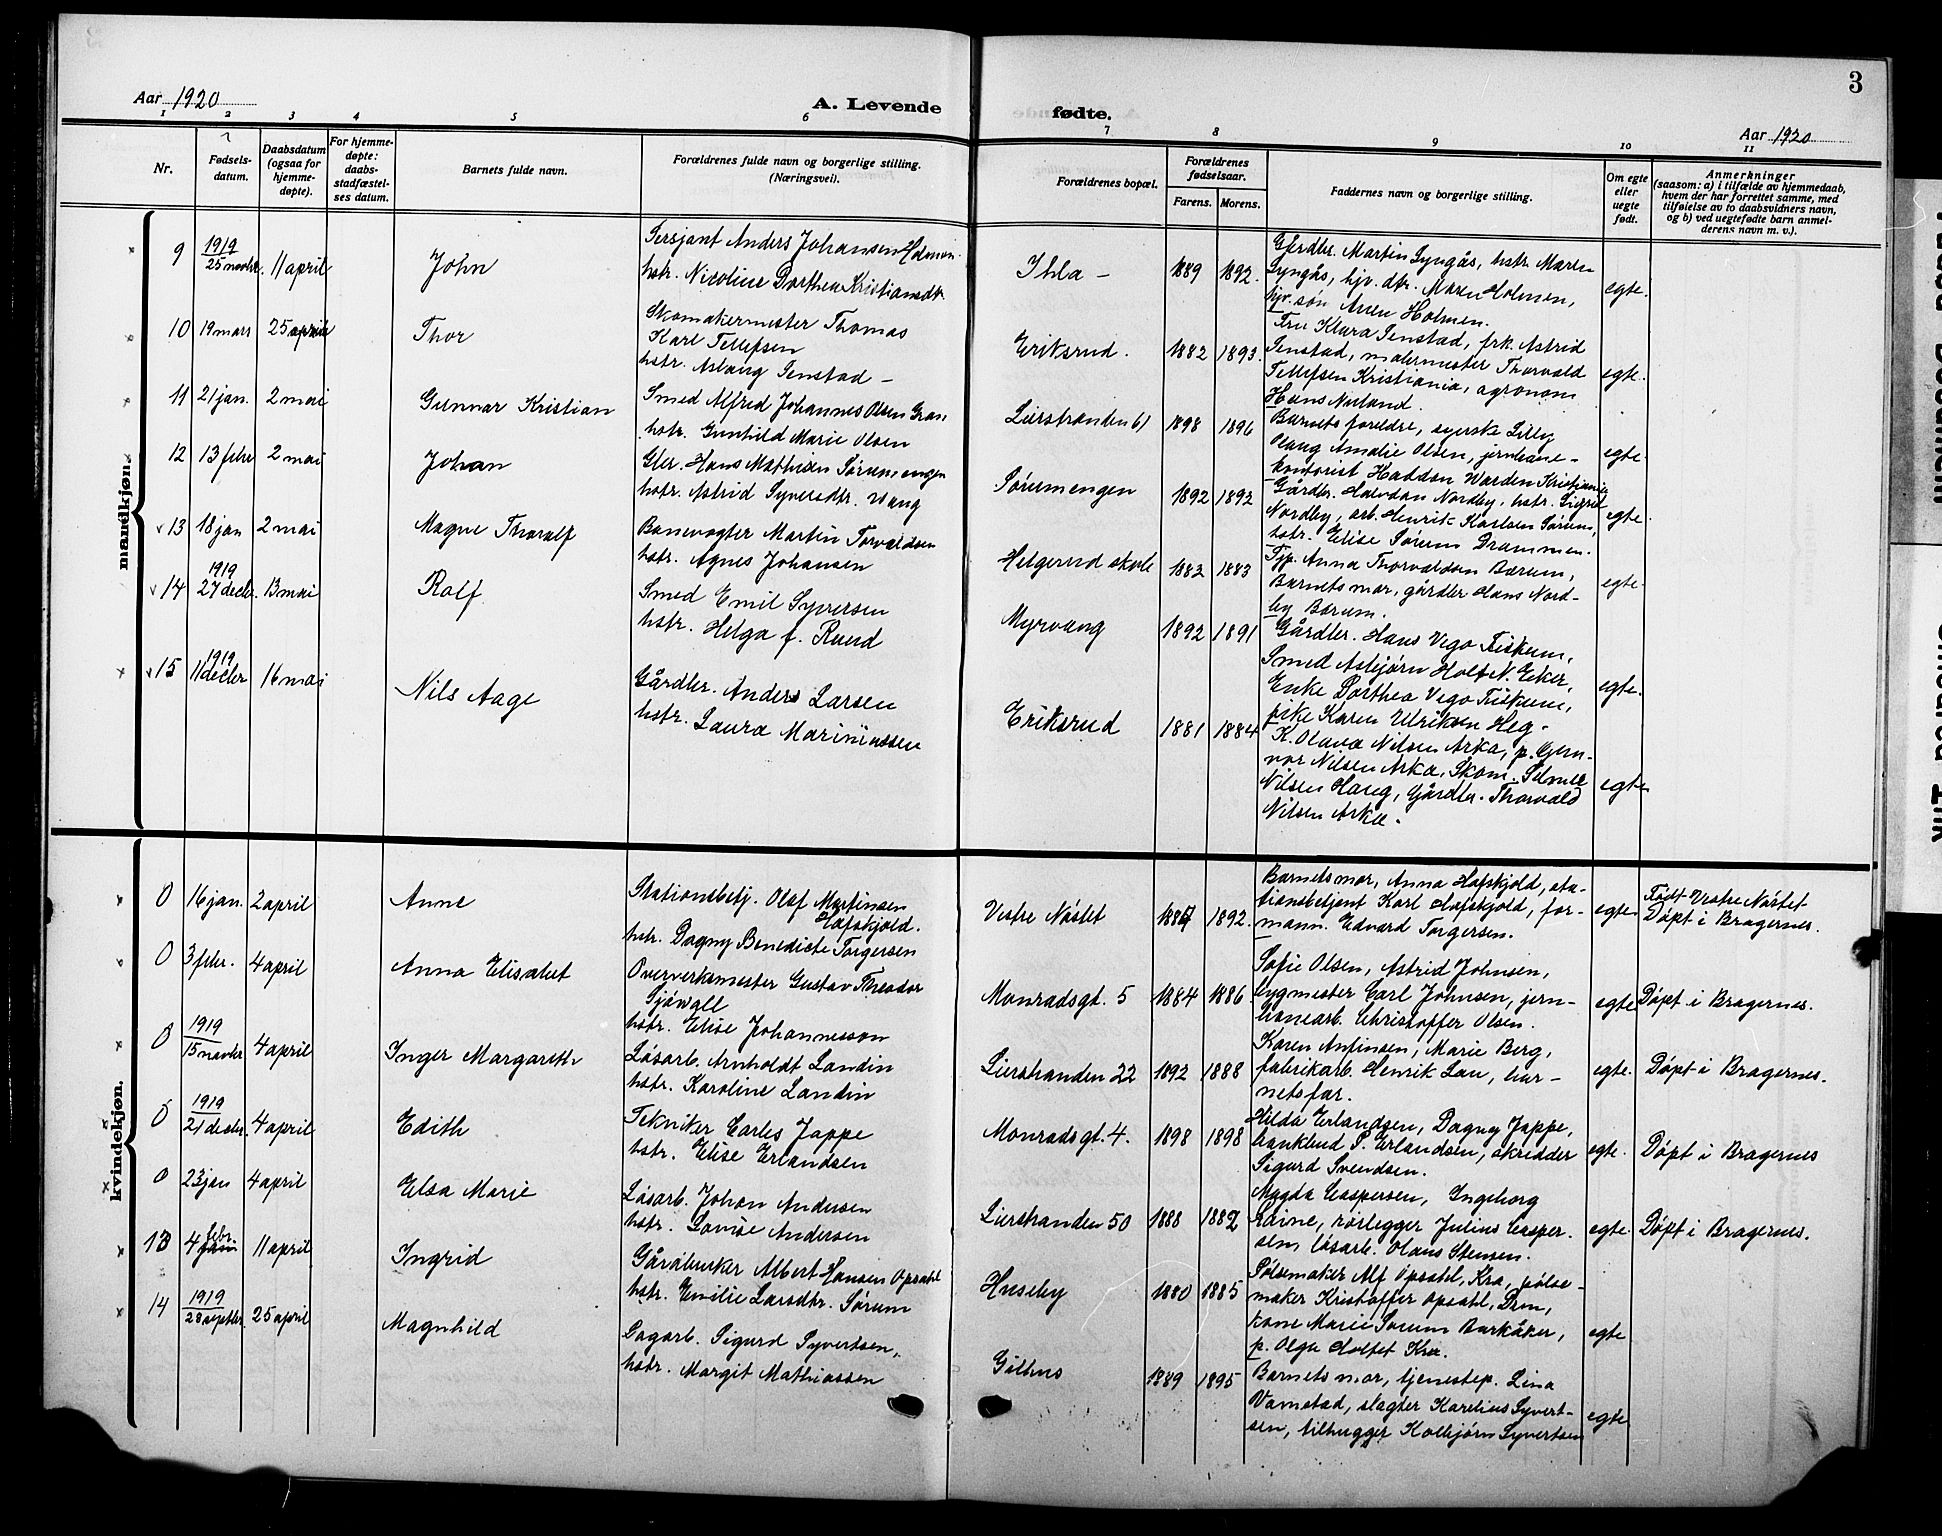 3
Aar 1920
A. Levende
fødte.
Aar 1920
1 2 3 4 5 6 7 8 9 10 11
Nr.
Fødsels-
datum.
Daabsdatum
(ogsaa for
hjemme-
døpte).
For hjemme-
døpte:
daabs-
stadfæstel-
ses datum.
Barnets fulde navn.
Forældrenes fulde navn og borgerlige stilling.
(Næringsvei).
Forældrenes bopæl.
Forældrenes
fødselsaar.
Farens. Morens.
Faddernes navn og borgerlige stilling.
Om egte
eller
uegte
født.
Anmerkninger
(saasom: a) i tilfælde av hjemmedaab,
hvem der har forrettet samme, med
tilføielse av to daabsvidners navn,
og b) ved uegtefødte barn anmel-
derens navn m. v.).
mandkjøn.
9 1919 25 novbr. 11 april John
Sersjant Anders Johansen Holmen
hstr. Nicoline Dorthea Kristiansdtr.
Ihla – 1889 1892
Gårdbr. Martin Lyngås, hstr. Maren
Lyngås, hjv. dtr. Maren Holmen,
hjv. søn Aren Holmen.
egte.
10 19 mars 25 april Thor
Skomakermester Thomas
Karl Tellefsen
hstr. Aslaug Senstad –
Eriksrud. 1882 1893
Fru Klara Senstad, frk. Astrid
Senstad, malermester Thorvald
Tellefsen Kristiania, agronom
Hans Nuland.
egte.
11 21 jan. 2 mai Gunnar Kristian
Smed Alfred Johannes Olsen Gran
hstr. Gunhild Marie Olsen
Lierstranden 61 1898 1896
Barnets foreldre, syerske Lilly
Olaug Amalie Olsen, jernbane-
kontorist Haddon Warden Kristiania
egte.
12 13 febr 2 mai Johan
Gbr. Hans Mathisen Sørumsengen
hstr. Astrid Syversdtr. Wang
Sørumengen 1892 1892
Gårdbr. Halvdan Nordby, hstr. Sigrid
Nordby, arb. Henrik Karlsen Sørum,
hstr. Elise Sørum Drammen.
egte.
13 18 jan 2 mai Magne Thoralf
Banevogter Martin Torvaldsen
hstr. Agnes Johansen
Helgerud skole 1882 1883
Tjp. Anna Thorvaldsen Bærum,
Barnets mor, gårdbr Hans Nord-
by Bærum.
egte.
14 1919 27 decbr. 13 mai Rolf
Smed Emil Syversen
hstr. Helga f. Ruud
Myrvang 1892 1891
Gårdbr. Hans Vego Fiskum,
Smed Asbjørn Holt N. Eker,
Enke Dorthea Vego Fiskum,
pike Karen Ulriksen Heg-
egte.
15 1919 11 decbr 16 mai Nils Aage
Gårdbr. Anders Larsen
hstr. Laura Mariniussen
Eriksrud 1881 1884
K. Olava Nilsen Arka, p. Gjern-
vor Nilsen Arka, Skom. Selmer
Nilsen Haug, Gårdbr. Thorvald
Nilsen Arka.
egte
kvindekjøn.
0 16 jan. 2 april Anne
Stationsbetj. Olaf Martinsen
Hofskjold.
hstr. Dagny Benedicte Torgersen
Vestre Nøstet 1887 1892.
Barnets mor, Anna Hofskjold, sta-
tionsbetjent Karl Hofskjold, for-
mann. Edvard Torgersen.
egte
Født Vestre Nøstet
Døpt i Bragernes.
0 3 febr. 4 april Anna Elisabet
Oververksmester Gustav Theodor
Sjöwall
hstr. Elise Johannesson
Monradsgt. 5 1884 1886.
Sofie Olsen, Astrid Johnsen,
bygmester Carl Johnsen, jern-
banearb. Christoffer Olsen.
egte Døpt i Bragernes.
0 1919 15 novbr 4 april Inger Margareth
Løsarb. Arnholdt Landin
hstr. Karoline Landin
Lierstranden 22 1892 1888
Karen Antinsen, Marie Berg,
fabrikarb. Henrik Lau, bar-
netsfar.
egte. Døpt i Bragernes.
0 1919 21 decbr. 4 april Edith
Tekniker Carles Jappe
hstr. Elise Erlandsen
Monradsgt. 4. 1898 1898
Hilda Erlandsen, Dagny Jappe,
bankbud P. Erlandsen, skrædder
Sigurd Svendsen.
egte. Døpt i Bragernes
0 23 jan 4 april Elsa Marie
Løsarb. Johan Andersen
hstr. Lovise Andersen
Lierstranden 50 1888 1882
Magda Caspersen, Ingeborg
Raine, rørlegger Julius Casper-
sen, løsarb. Olaus Stensen.
egte. Døpt i Bragernes.
13 4 febr. 11 april Ingrid
Gårdbruker Albert Hansen Opsahl
hstr. Emilie Larsdtr. Sørum
Huseby 1880 1885
Pølsemaker Alf Opsahl, Kra, pølse-
maker Kristoffer Opsahl, Drm,
kone Marie Sørum Barkåker,
p. Olga Holtet Kra.
egte
14 1919 28 septbr. 25 april Magnhild
Gagarb. Sigurd Syvertsen,
hstr. Margit Mathiassen
Gilhus 1889 1895
Barnets mor, tjenestep. Lina
Vamstad, slagter Karelius Syvert-
sen, tilhugger Kolbjørn Syvertsen
egte